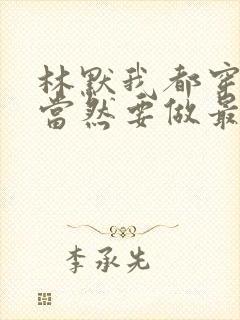 林默我都穿
當然要做最
李承先